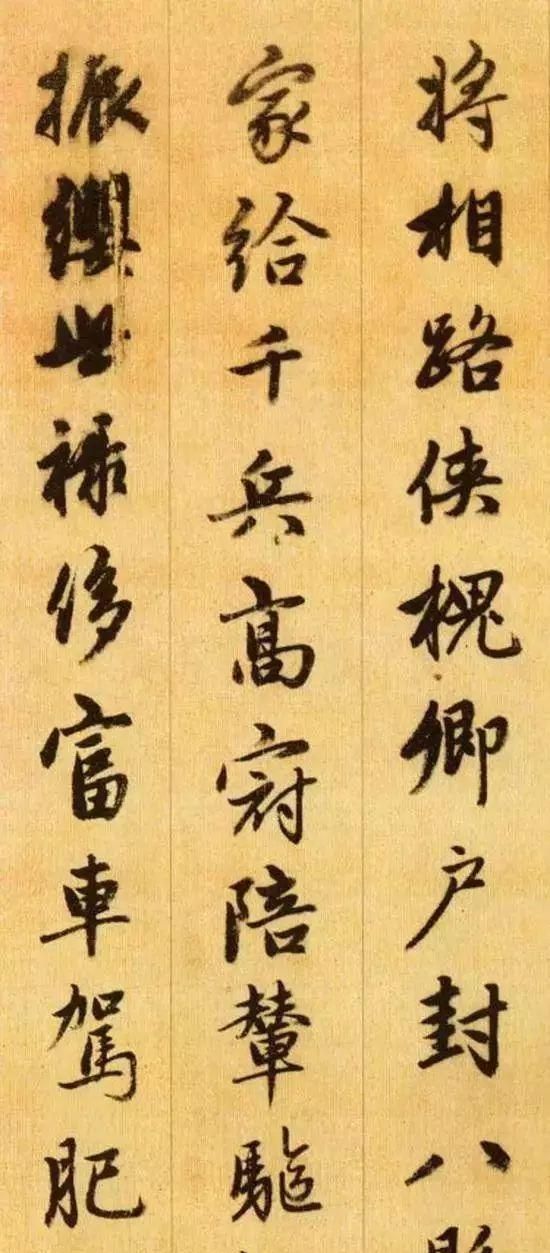 將相路侠槐卿户封八
家給千兵髙冠陪輦驅
振纓世禄侈富車駕肥